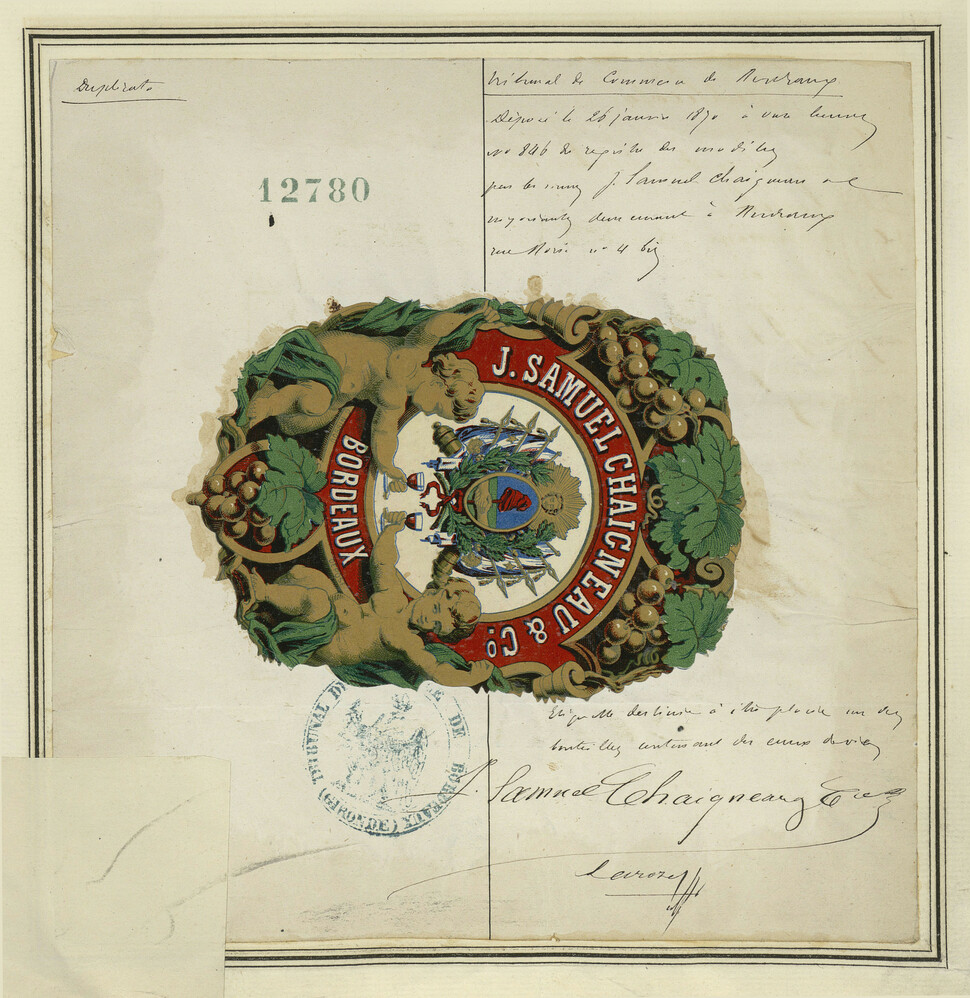 Duplicata
12780
Tribunal de Commerce de Bordeaux
Déposé le 26 janvier 1870 à onze heures
no 846 du registre des modèles
par les sieurs J. Samuel Chaigneau et C
négociants demeurant à Bordeaux
rue no 4 bis
J. SAMUEL CHAIGNEAU & Co
BORDEAUX
TRIBUNAL DE DE BORDEAUX (GIRONDE)
Etiquette destinée à être placée sur des
bouteilles contenant des eaux de vie
J. Samuel Chaigneau & Cie